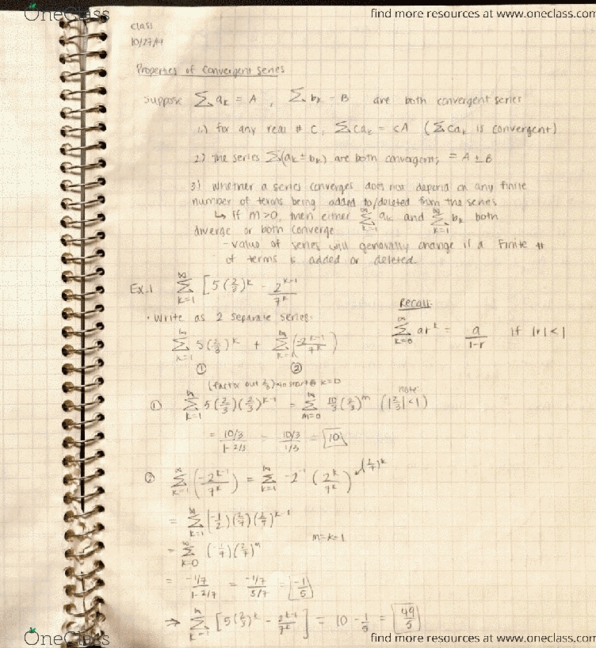 OneClass
find more resources at www.oneclass.com
class
10/27/14
Properties of Convergent series
Suppose ∑ aₖ = A , ∑ bₖ = B are both convergent series
1.) for any real # C, ∑ caₖ = cA (∑ caₖ is convergent)
2.) the series ∑(aₖ ± bₖ) are both convergent; = A ± B
3) Whether a series converges does not depend on any finite
number of terms being added to/deleted from the series
↳ If M>0, then either ∑ aₖ and ∑ bₖ both
diverge or both converge
- Value of series will generally change if a finite #
of terms is added or deleted.
Ex. 1 ∑_{k=1}^∞ [5(2/3)^k - 2^{k-1}/7^k]
• Write as 2 separate series:
∑_{k=1}^∞ 5(2/3)^k + ∑_{k=1}^∞ (-2^{k-1}/7^k)
① ②
Recall:
∑_{k=0}^∞ ar^k = a/(1-r) if |r|<1
(factor out 2/3) → in start @ k=0
① ∑_{k=1}^∞ 5(2/3)(2/3)^{k-1} = ∑_{m=0}^∞ 10/3 (2/3)^m (|2/3|<1)
note
= (10/3)/(1-2/3) = (10/3)/(1/3) = 10
② ∑_{k=1}^∞ (-2^{k-1}/7^k) = ∑_{k=1}^∞ -2^{-1} (2^k/7^k) (2/7)^k
= ∑_{k=1}^∞ (-1/2)(2/7)(2/7)^{k-1}
m=k-1
= ∑_{k=0}^∞ (-1/7)(2/7)^m
= (-1/7)/(1-2/7) = (-1/7)/(5/7) = -1/5
⇒ ∑_{k=1}^∞ [5(2/3)^k - 2^{k-1}/7^k] = 10 - 1/5 = 49/5
OneClass
find more resources at www.oneclass.com